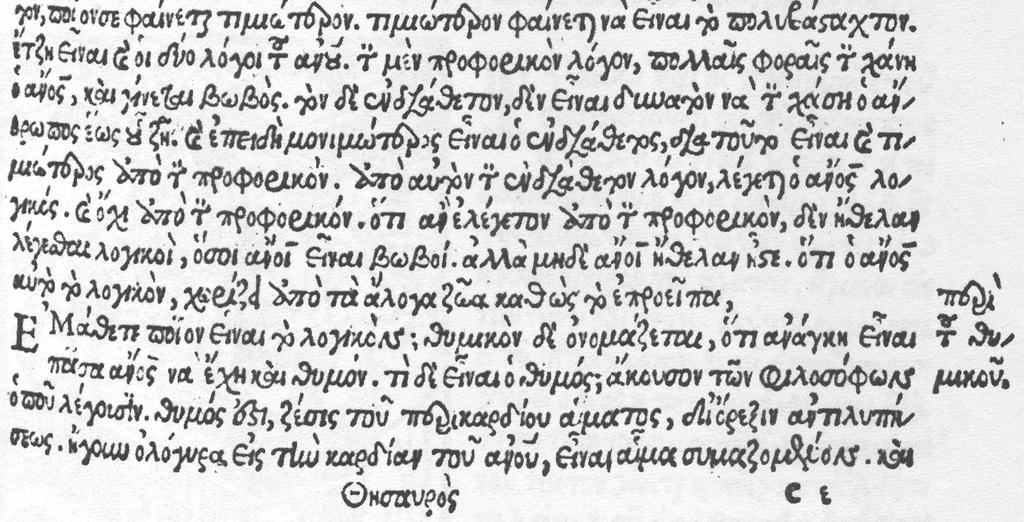 τον, ποῖον σε φαίνεται τιμιώτερον. τιμιώτερον φαίνεται νὰ εἶναι τὸ πολυβάσταχτον.
ἔτζη εἶναι καὶ οἱ δύο λόγοι τοῦ ἀνου̅. τὸν μὲν προφορικὸν λόγον, πολλαῖς φοραῖς τὸν χάνη
ὁ ἄνος̅, καὶ γίνεται βωβὸς. τὸν δὲ ἐνδιάθετον, δὲν εἶναι δυνατὸν νὰ τὸν χάση ὁ ἄν/
θρωπος ἕως οὗ ζῆ. καὶ ἐπειδὴ μονιμώτερος εἶναι ὁ ἐνδιάθετος, διὰ τοῦτο εἶναι καὶ τι/
μιώτερος ἀπὸ τὸν προφορικόν. ἀπὸ αὐτὸν τὸν ἐνδιάθετον λόγον, λέγεται ὁ ἄνος̅ λο/
γικός. καὶ ὄχι ἀπὸ τὸν προφορικόν. ὅτι ἂν ἐλέγετον ἀπὸ τὸν προφορικὸν, δὲν ἤθελαν
λέγεσθαι λογικοὶ, ὅσοι ἄνοι̅ εἶναι βωβοί. ἀλλὰ μηδὲ ἄνοι̅ ἤθελαν ἦστε. ὅτι ὁ ἄνος̅
αὐτὸ τὸ λογικὸν, χωρίζει ἀπὸ τὰ ἄλογα ζῶα καθὼς τὸ ἐπροεῖπα,
περὶ
ΕΜάθετε ποῖον εἶναι τὸ λογικὸν; θυμικὸν δὲ ὀνομάζεται, ὅτι ἀνάγκη εἶναι
τοῦ θυ/
πάσα ἄνος̅ νὰ ἔχη καὶ θυμόν. τὶ δὲ εἶναι ὁ θυμός; ἄκουσον τῶν Φιλοσόφων
μικοῦ.
ὁποῦ λέγουσιν. θυμός ἐστι, ζέσις τοῦ περικαρδίου αἵματος, δι' ὄρεξιν ἀντιλυπή/
σεως. ἤγουν ὁλόγυρα εἰς τὴν καρδίαν τοῦ ἀνου̅, εἶναι αἷμα συμαζομένον. καὶ
Θησαυρὸς
c ε